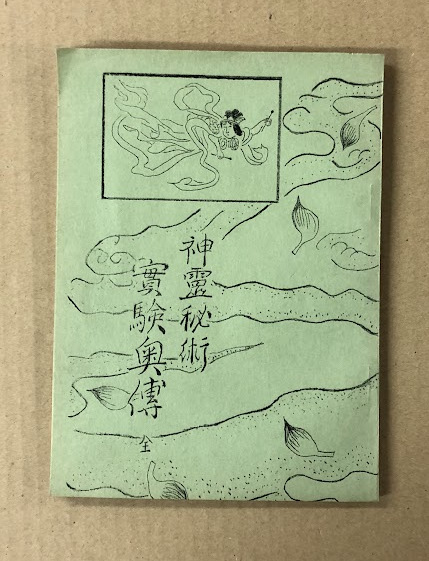 神靈秘術
實驗奥傳
全